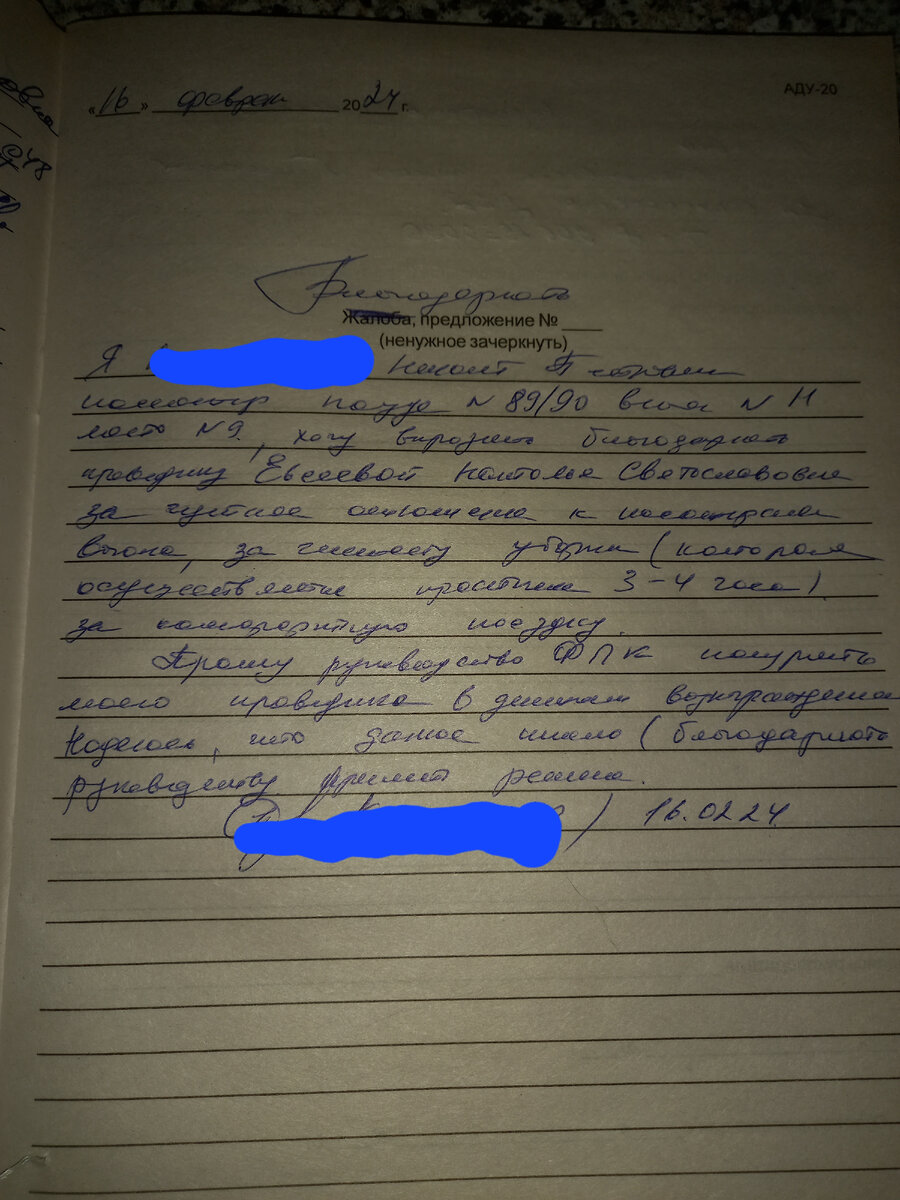 АДУ-20
«16» феврал 2024 г.
Благодарность
Жалоба, предложение № ____
(ненужное зачеркнуть)
Я
пассажир поезда № 89/90 вагон № 11
место № 9, хочу выразить благодарность
проводнику Евсеевой Наталье Светославовне
за чуткое отношение к пассажирам
вагона, за чистоту уборки (которая
осуществляется практически 3-4 часа)
за комфортную поездку.
Прошу руководство ФПК поощрить
моего проводника в денежном вознаграждении
Надеюсь, что данное письмо (благодарность
руководству примет решение.
) 16.02.24.